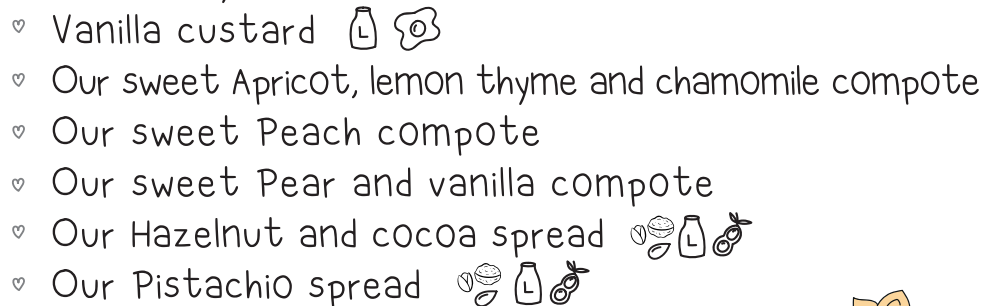 Vanilla custard L
Our sweet Apricot, lemon thyme and chamomile compote
Our sweet Peach compote
Our sweet Pear and vanilla compote
Our Hazelnut and cocoa spread L
Our Pistachio spread L